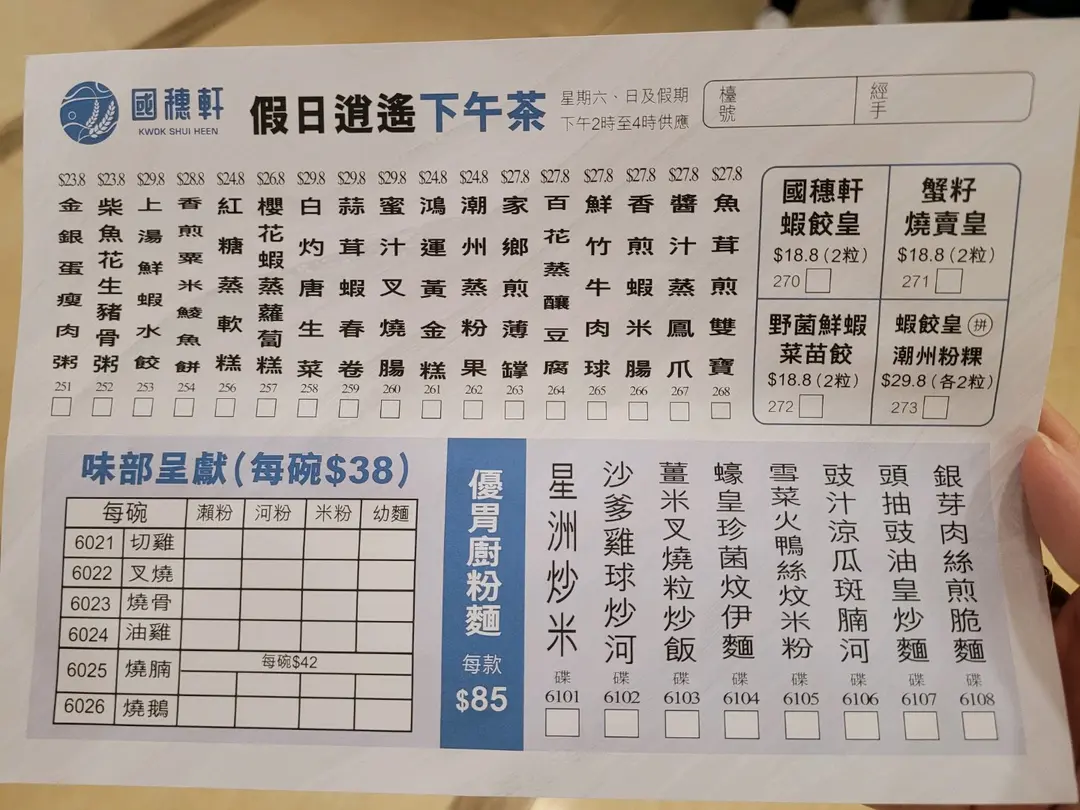 國穗軒
KWOK SHUI HEEN
假日逍遙下午茶
星期六、日及假期
下午2時至4時供應
檯號
經手
$23.8 金銀蛋瘦肉粥 251
$23.8 柴魚花生豬骨粥 252
$29.8 上湯鮮蝦水餃 253
$28.8 香煎粟米鯪魚餅 254
$24.8 紅糖蒸軟糕 256
$26.8 櫻花蝦蒸蘿蔔糕 257
$29.8 白灼唐生菜 258
$29.8 蒜茸蝦春卷 259
$29.8 蜜汁叉燒腸 260
$24.8 鴻運黃金糕 261
$24.8 潮州蒸粉果 262
$27.8 家鄉煎薄罉 263
$27.8 百花蒸釀豆腐 264
$27.8 鮮竹牛肉球 265
$27.8 香煎蝦米腸 266
$27.8 醬汁蒸鳳爪 267
$27.8 魚茸煎雙寶 268
國穗軒
蝦餃皇
$18.8 (2粒)
270
蟹籽
燒賣皇
$18.8 (2粒)
271
野菌鮮蝦
菜苗餃
$18.8 (2粒)
272
蝦餃皇 拼
潮州粉粿
$29.8 (各2粒)
273
味部呈獻(每碗$38)
每碗 瀨粉 河粉 米粉 幼麵
6021 切雞
6022 叉燒
6023 燒骨
6024 油雞
每碗$42
6025 燒腩
6026 燒鵝
優胃廚粉麵
每款
$85
星洲炒米 碟 6101
沙爹雞球炒河 碟 6102
薑米叉燒粒炒飯 碟 6103
蠔皇珍菌炆伊麵 碟 6104
雪菜火鴨絲炆米粉 碟 6105
豉汁涼瓜斑腩河 碟 6106
頭抽豉油皇炒麵 碟 6107
銀芽肉絲煎脆麵 碟 6108